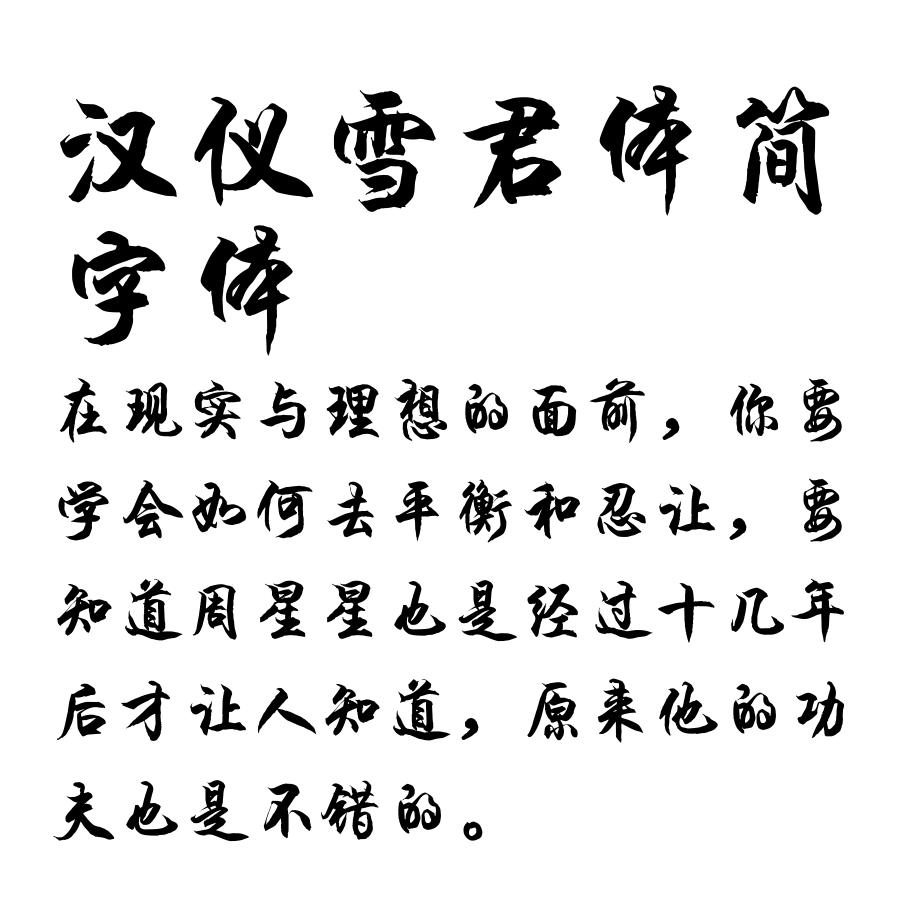 汉仪雪君体简
字体
在现实与理想的面前，你要
学会如何去平衡和忍让，要
知道周星星也是经过十几年
后才让人知道，原来他的功
夫也是不错的。